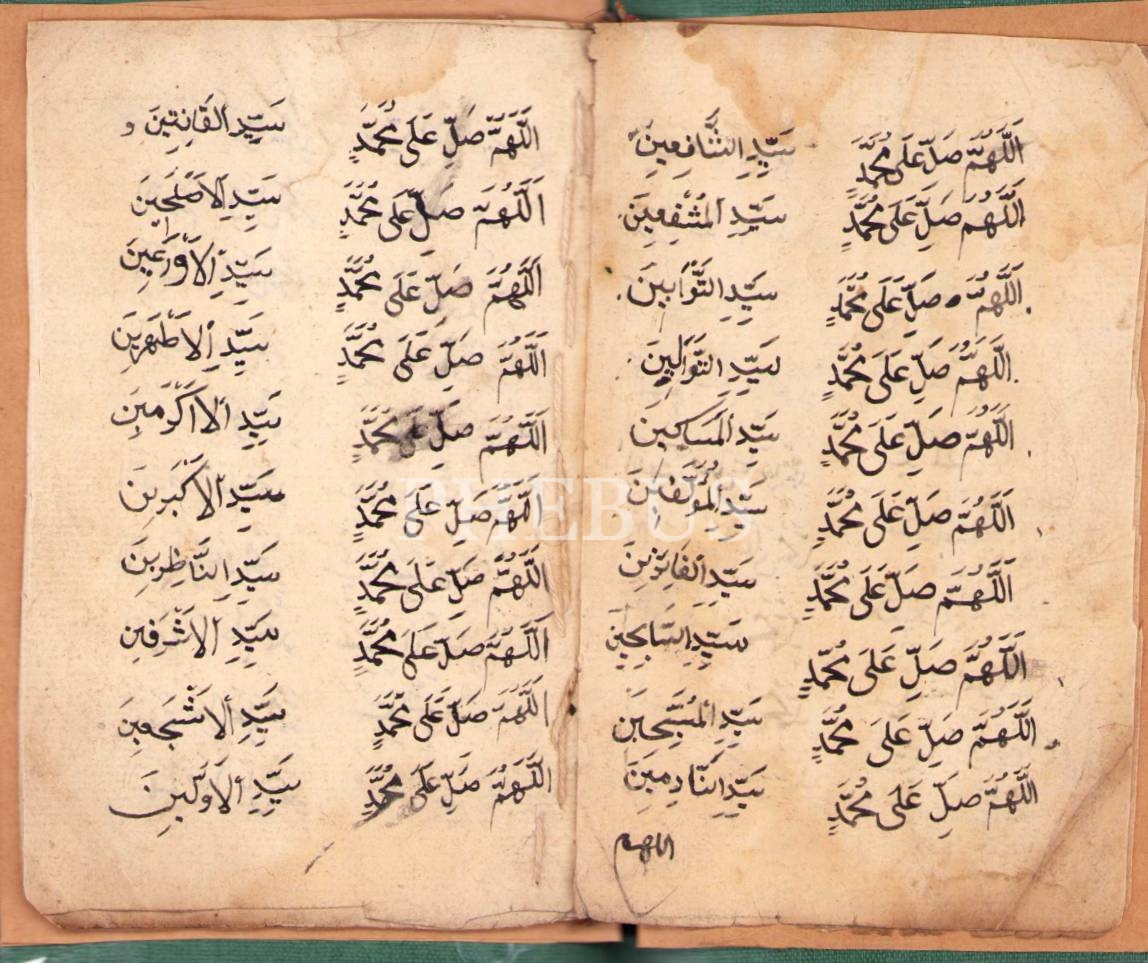 اَللَّهُمَّ صَلِّ عَلَى مُحَمَّدٍ سَيِّدِ الشَّافِعِينَ
اَللَّهُمَّ صَلِّ عَلَى مُحَمَّدٍ سَيِّدِ الْمُشْفِعِينَ
اَللَّهُمَّ صَلِّ عَلَى مُحَمَّدٍ سَيِّدِ التَّوَّابِينَ
اَللَّهُمَّ صَلِّ عَلَى مُحَمَّدٍ سَيِّدِ
اَللَّهُمَّ صَلِّ عَلَى مُحَمَّدٍ سَيِّدِ الْمَسَاكِينَ
اَللَّهُمَّ صَلِّ عَلَى مُحَمَّدٍ سَيِّدِ الْمُؤَلَّفِينَ
اَللَّهُمَّ صَلِّ عَلَى مُحَمَّدٍ سَيِّدِ
اَللَّهُمَّ صَلِّ عَلَى مُحَمَّدٍ سَيِّدِ السَّابِحِينَ
اَللَّهُمَّ صَلِّ عَلَى مُحَمَّدٍ سَيِّدِ الْمُسَبِّحِينَ
اَللَّهُمَّ صَلِّ عَلَى مُحَمَّدٍ سَيِّدِ النَّادِمِينَ
اللهم
اَللَّهُمَّ صَلِّ عَلَى مُحَمَّدٍ سَيِّدِ الْقَانِتِينَ
اَللَّهُمَّ صَلِّ عَلَى مُحَمَّدٍ سَيِّدِ الْاَصْلَحِينَ
اَللَّهُمَّ صَلِّ عَلَى مُحَمَّدٍ سَيِّدِ الْاَوْرَعِينَ
اَللَّهُمَّ صَلِّ عَلَى مُحَمَّدٍ سَيِّدِ الْاَطْهَرِينَ
اَللَّهُمَّ صَلِّ عَلَى مُحَمَّدٍ سَيِّدِ الْاَكْرَمِينَ
اَللَّهُمَّ صَلِّ عَلَى مُحَمَّدٍ سَيِّدِ الْاَكْبَرِينَ
اَللَّهُمَّ صَلِّ عَلَى مُحَمَّدٍ سَيِّدِ النَّاظِرِينَ
اَللَّهُمَّ صَلِّ عَلَى مُحَمَّدٍ سَيِّدِ الْاَشْرَفِينَ
اَللَّهُمَّ صَلِّ عَلَى مُحَمَّدٍ سَيِّدِ الْاَشْجَعِينَ
اَللَّهُمَّ صَلِّ عَلَى مُحَمَّدٍ سَيِّدِ الْاَوَّلِينَ
PHEBUS